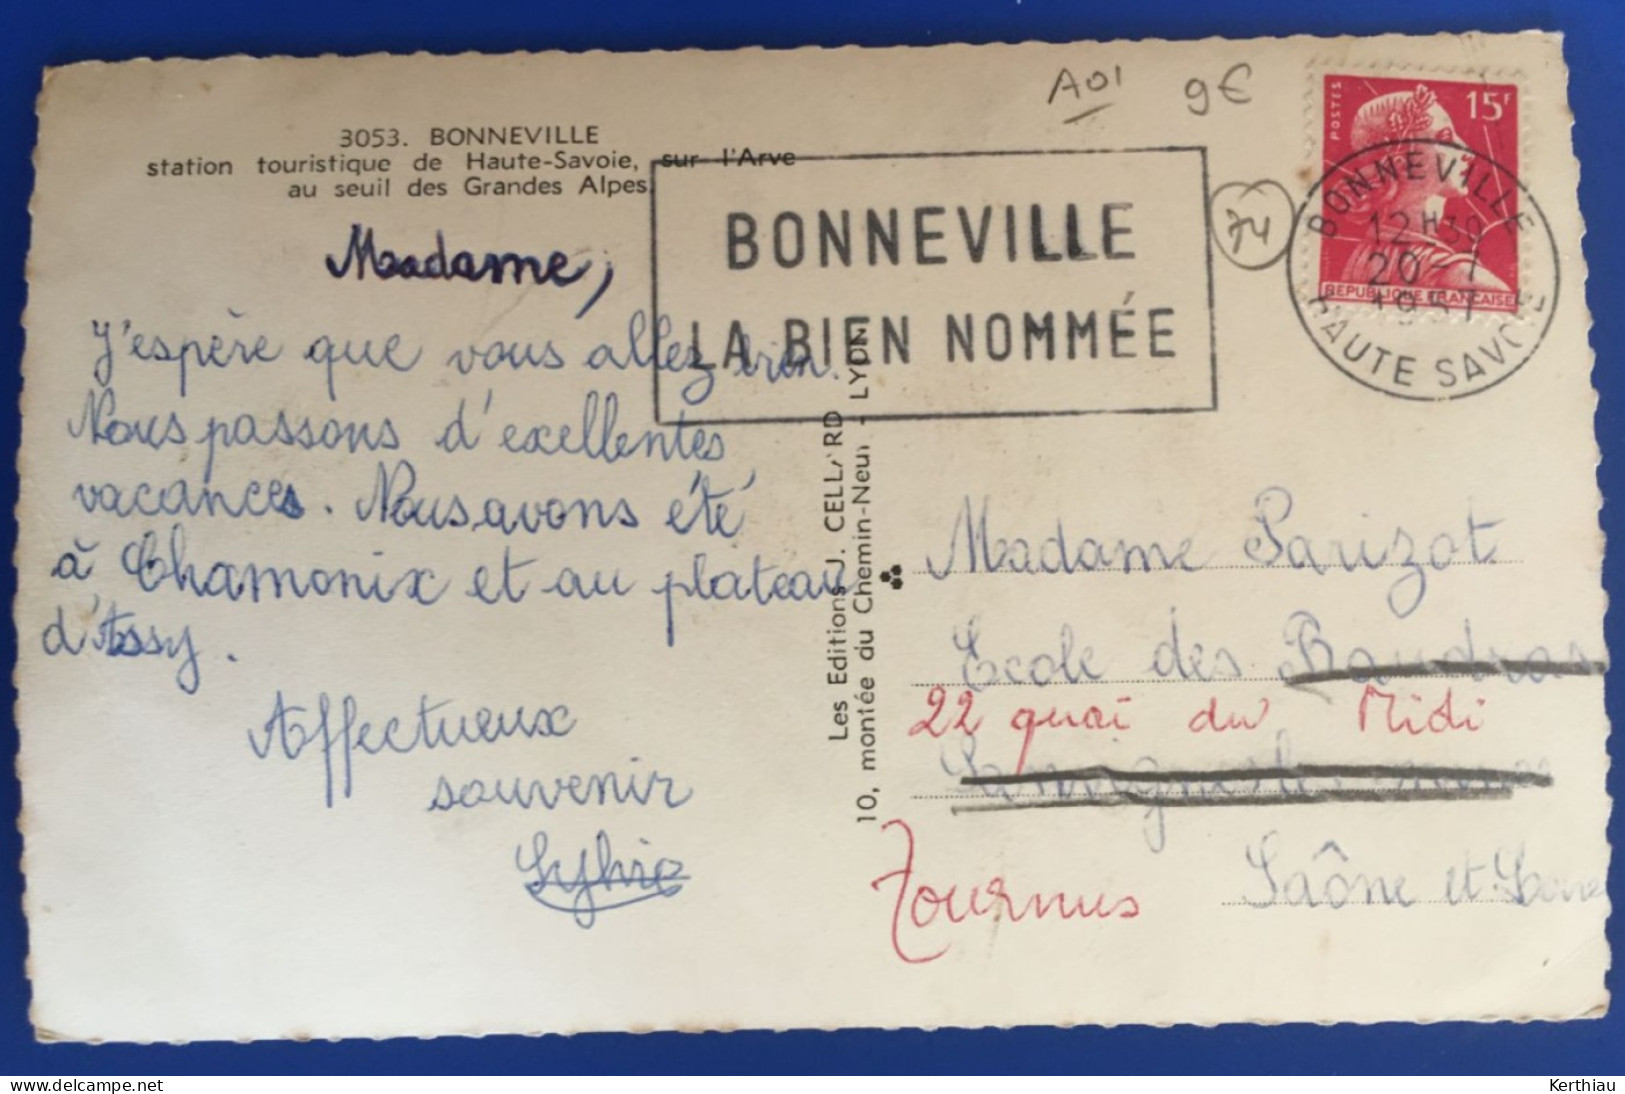 A01 9€
3053. BONNEVILLE
station touristique de Haute-Savoie, sur l'Arve
au seuil des Grandes Alpes.
BONNEVILLE
LA BIEN NOMMÉE
74
POSTES 15F
REPUBLIQUE FRANCAISE
BONNEVILLE
12H30
20-7
1957
HAUTE SAVOIE
Madame,
J'espère que vous allez bien.
Nous passons d'excellentes
vacances. Nous avons été
à Chamonix et au plateau
d'Assy.
Affectueux
souvenir
Les Editions J. CELLARD
10, montée du Chemin-Neuf - LYON
Madame Parizot
Ecole des
22 quai du Midi
Tournus Saône et Loire
www.delcampe.net
Kerthiau